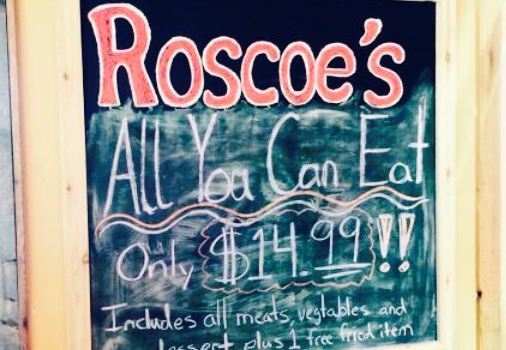 Roscoe's
All You Can Eat
Only $14.99!!
Includes all meats, vegtables and
dessert plus 1 free fried item